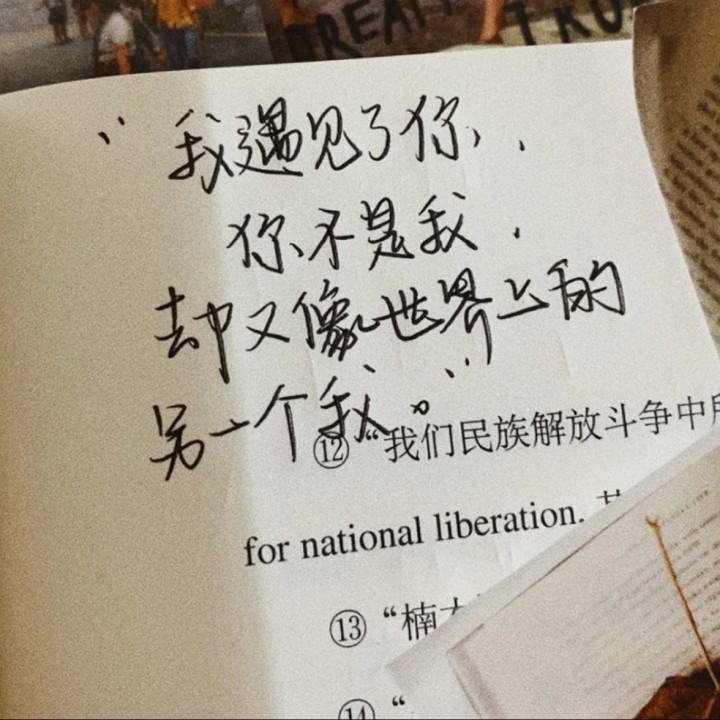 DREAM
TRU
“我遇见了你，
你不是我，
却又像世界上的
另一个我。”
⑫“我们民族解放斗争中
for national liberation.
⑬“楠
⑭“